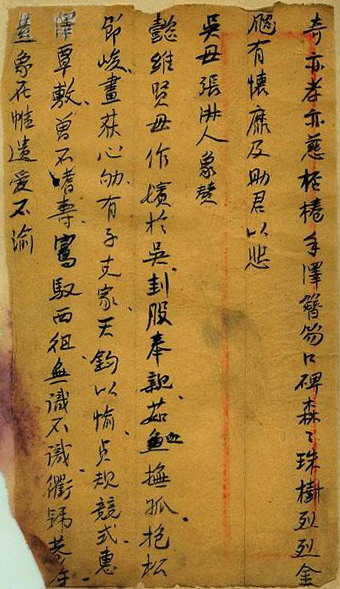 奇亦孝亦慈桮棬手澤簪笏口碑森々珠樹烈烈金
有懷靡及助君以悲
吳母張淑人象贊
懿維賢母作嬪於吳刲股奉親茹撫孤抱松
節峻畫荻心劬有子克家天鈞以愉貞規競式惠
澤覃敷曾不嗜壽鸞馭西徂無識不識衢號巷
遺象在帷遺愛不渝